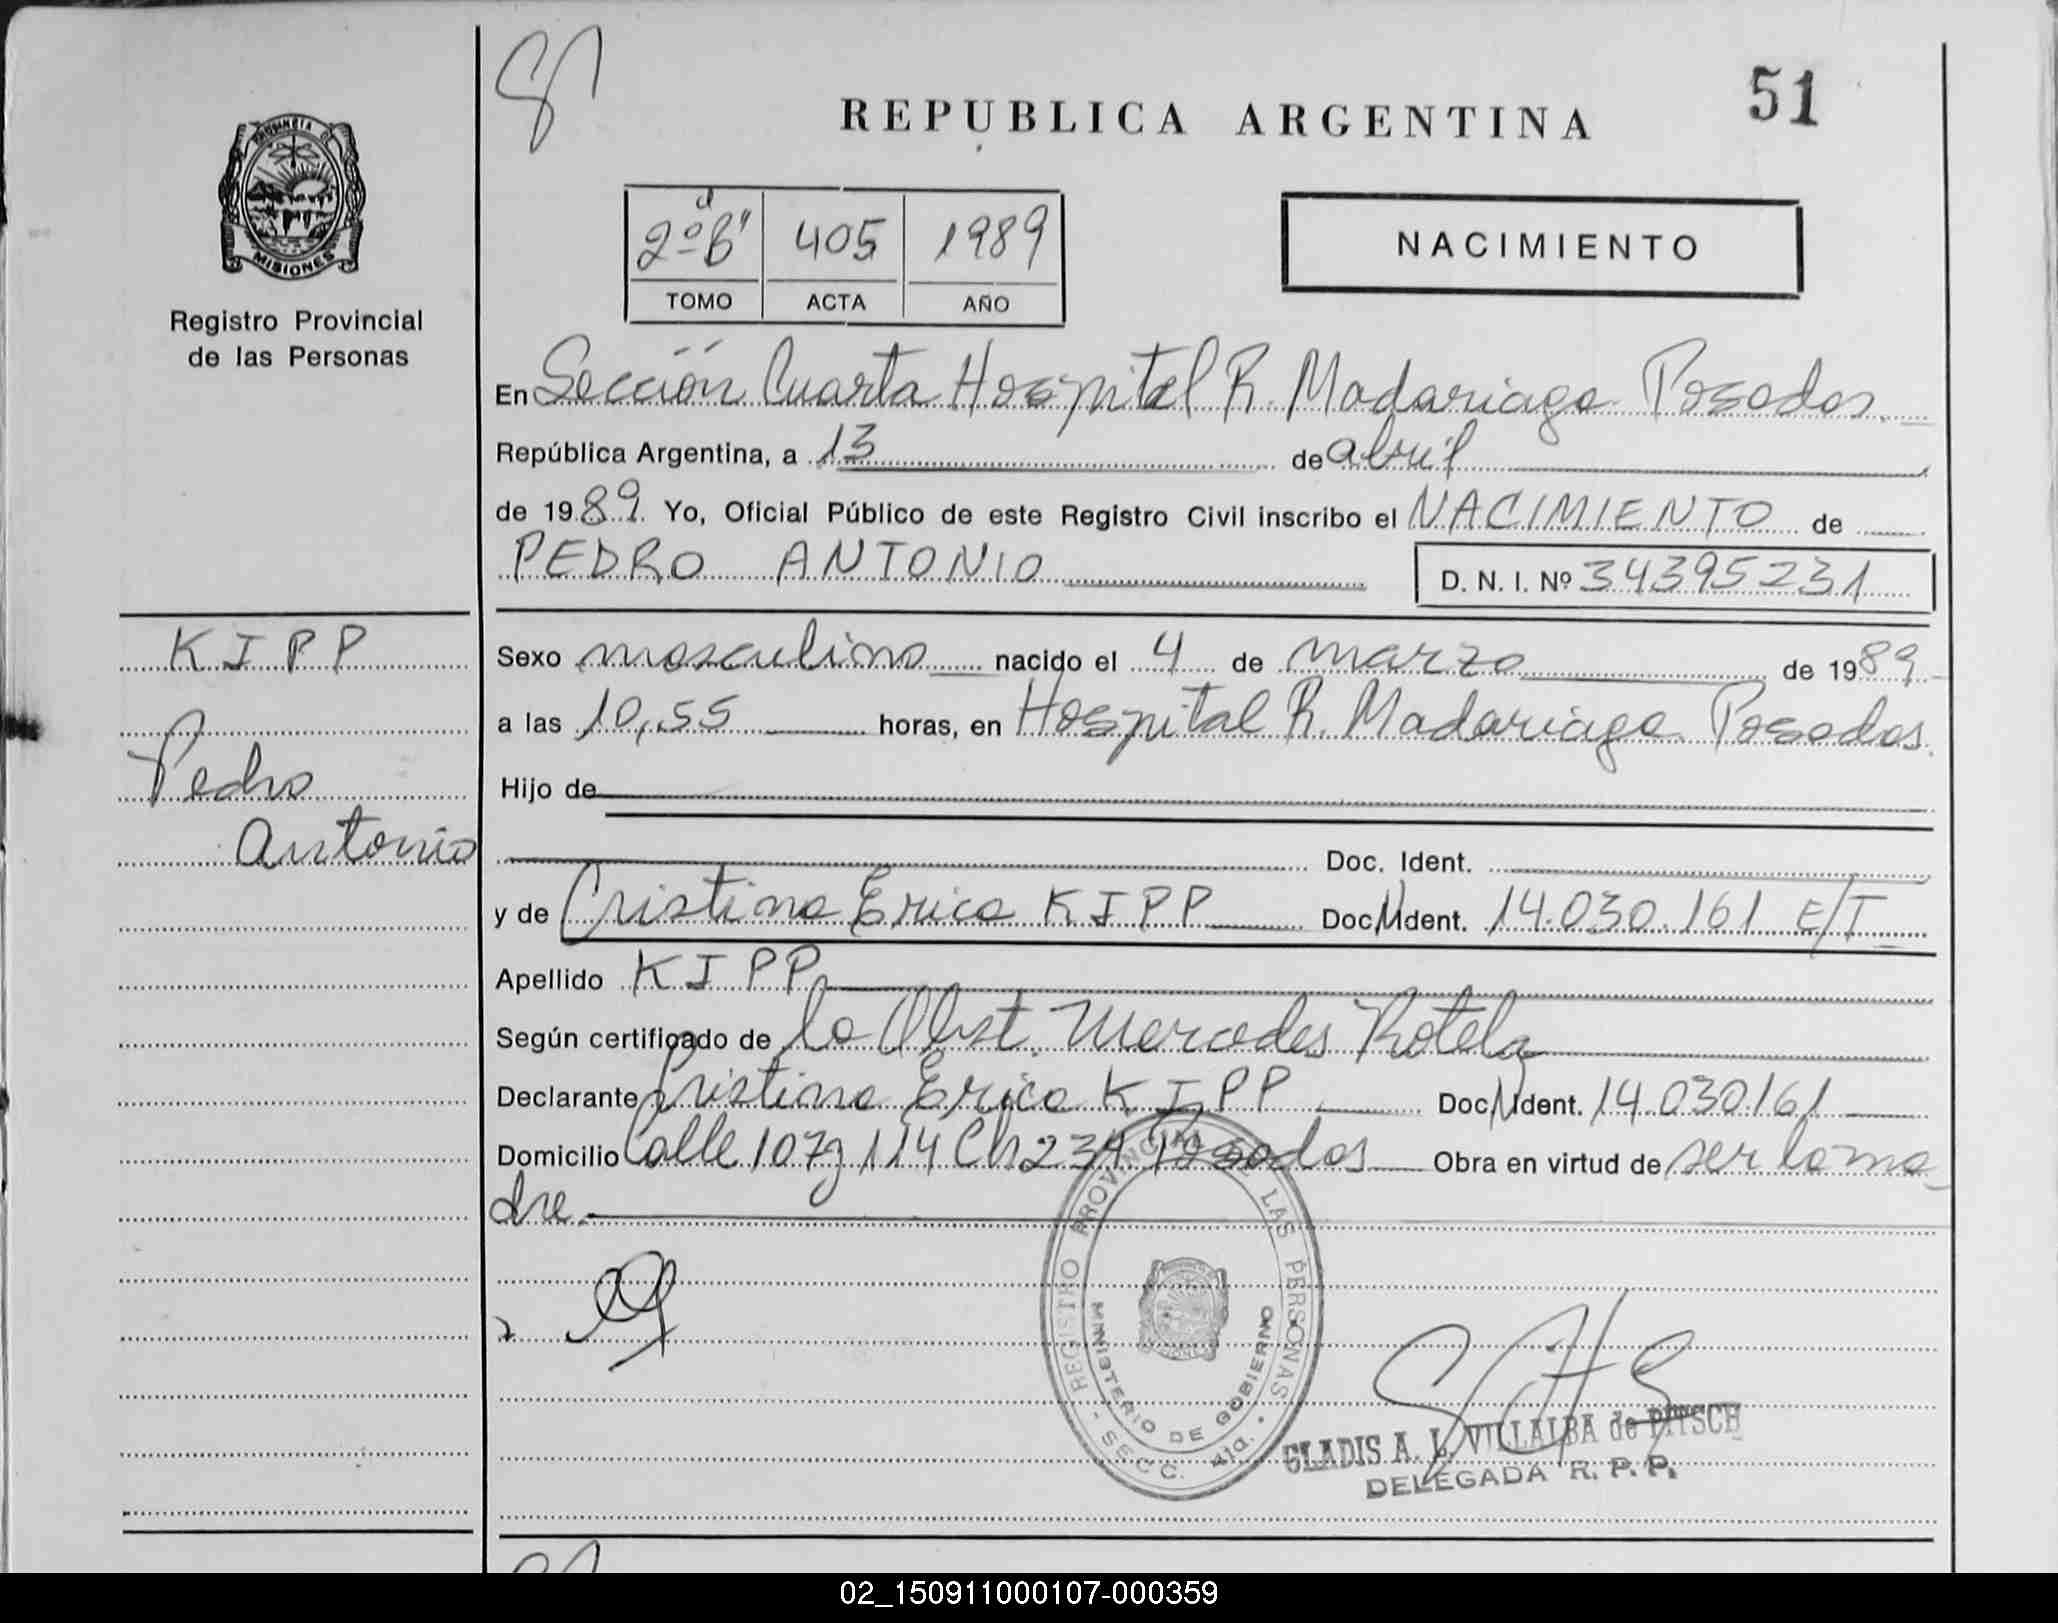 51
REPUBLICA ARGENTINA
PROVINCIA DE
MISIONES
Registro Provincial
de las Personas
2º "B" 405 1989
TOMO ACTA AÑO
NACIMIENTO
En Sección Cuarta Hospital R. Madariaga Posadas.
República Argentina, a 13 de abril
de 1989. Yo, Oficial Público de este Registro Civil inscribo el NACIMIENTO de
PEDRO ANTONIO D. N. I. Nº 34395231
KIPP
Pedro
Antonio
Sexo masculino nacido el 4 de marzo de 1989
a las 10,55 horas, en Hospital R. Madariaga Posadas.
Hijo de
Doc. Ident.
y de Cristina Erica KIPP Doc. Ident. 14.030.161 E/T
Apellido KIPP
Según certificado de la Obst. Mercedes Rotela
Declarante Cristina Erica KIPP Doc. Ident. 14.030.161
Domicilio Calle 107 y 114 Ch 234 Posadas Obra en virtud de ser la ma
dre.
REGISTRO PROVINCIAL DE LAS PERSONAS
MINISTERIO DE GOBIERNO
- SECC. 4ta. -
GLADIS A. L. VILLALBA de PITSCH
DELEGADA R. P. P.
02_150911000107-000359